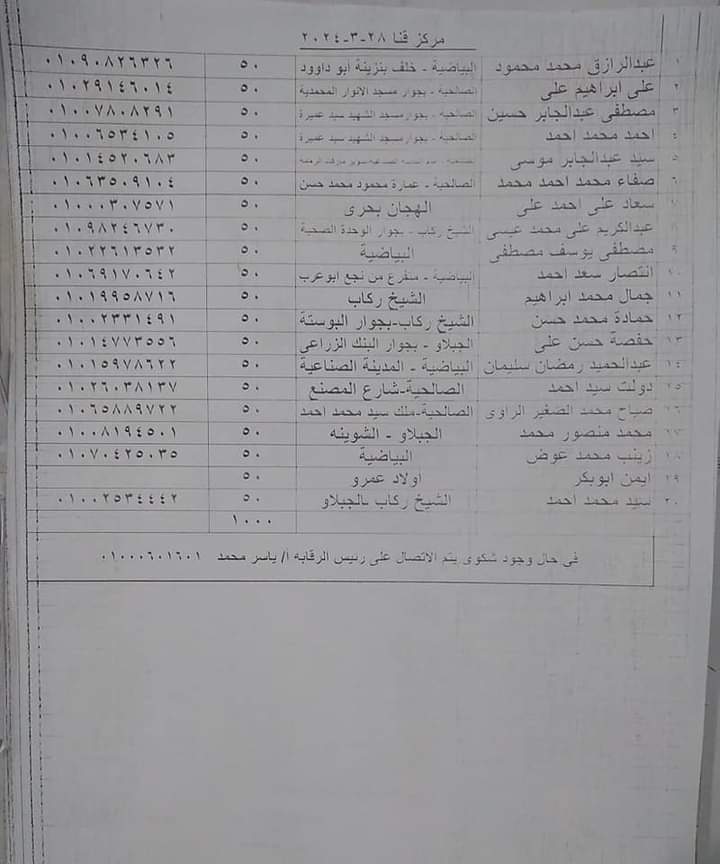 مركز قنا ٢٨-٣-٢٠٢٤
١ عبدالرازق محمد محمود البياضية - خلف بنزينة ابو داوود ٥٠ ٠١٠٩٠٨٢٦٣٢٦
٢ على ابراهيم على الصالحية - بجوار مسجد الانوار المحمدية ٥٠ ٠١٠٢٩١٤٦٠١٤
٣ مصطفى عبدالجابر حسين الصالحية - بجوار مسجد الشهيد سيد عميرة ٥٠ ٠١٠٠٧٨٠٨٢٩١
٤ احمد محمد احمد الصالحية - بجوار مسجد الشهيد سيد عميرة ٥٠ ٠١٠٠٦٥٣٤١٠٥
٥ سيد عبدالجابر موسى ٥٠ ٠١٠١٤٥٢٠٦٨٣
٦ صفاء محمد احمد محمد الصالحية - عمارة محمود محمد حسن ٥٠ ٠١٠٦٣٥٠٩١٠٤
٧ سعاد على احمد على الهجان بحرى ٥٠ ٠١٠٠٠٣٠٧٥٧١
٨ عبدالكريم على محمد عيسى الشيخ ركاب - بجوار الوحدة الصحية ٥٠ ٠١٠٩٨٢٤٦٧٣٠
٩ مصطفى يوسف مصطفى البياضية ٥٠ ٠١٠٢٢٦١٣٥٣٢
١٠ انتصار سعد احمد البياضية - متفرع من نجع ابوعرب ٥٠ ٠١٠٦٩١٧٠٦٤٢
١١ جمال محمد ابراهيم الشيخ ركاب ٥٠ ٠١٠١٩٩٥٨٧١٦
١٢ حمادة محمد حسن الشيخ ركاب-بجوار البوستة ٥٠ ٠١٠٠٢٣٣١٤٩١
١٣ حفصة حسن على الجبلاو - بجوار البنك الزراعى ٥٠ ٠١٠١٤٧٧٣٥٥٦
١٤ عبدالحميد رمضان سليمان البياضية - المدينة الصناعية ٥٠ ٠١٠١٥٩٧٨٦٢٢
١٥ دولت سيد احمد الصالحية-شارع المصنع ٥٠ ٠١٠٢٦٠٣٨١٣٧
١٦ صباح محمد الصغير الراوى الصالحية-ملك سيد محمد احمد ٥٠ ٠١٠٦٥٨٨٩٧٢٢
١٧ محمد منصور محمد الجبلاو - الشوينه ٥٠ ٠١٠٠٨١٩٤٥٠١
١٨ زينب محمد عوض البياضية ٥٠ ٠١٠٧٠٤٢٥٠٣٥
١٩ ايمن ابوبكر اولاد عمرو ٥٠
٢٠ سيد محمد احمد الشيخ ركاب بالجبلاو ٥٠ ٠١٠٠٢٥٣٤٤٤٢
١٠٠٠
فى حال وجود شكوى يتم الاتصال على رئيس الرقابه أ/ ياسر محمد ٠١٠٠٠٦٠١٦٠١